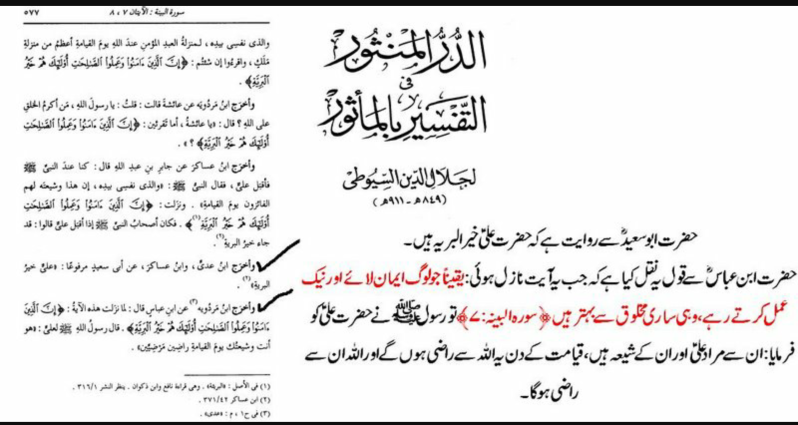 سورة البينة : الآيتان ٧ ، ٨
٥٧٧
والذى نفسى بيده ، لمنزلةُ العبدِ المؤمنِ عندَ اللهِ يومَ القيامةِ أعظمُ من منزلةِ
مَلَكٍ ، واقرءُوا إن شئتم : ﴿إِنَّ ٱلَّذِينَ ءَامَنُواْ وَعَمِلُواْ ٱلصَّٰلِحَٰتِ أُوْلَٰٓئِكَ هُمْ خَيْرُ
ٱلْبَرِيَّةِ﴾ .
وأخرَج ابنُ مَردُويَه عن عائشةَ قالت : قلتُ : يا رسولَ اللهِ ، مَن أكرمُ الخلقِ
على اللهِ ؟ قال : «يا عائشةُ ، أما تَقرئين : ﴿إِنَّ ٱلَّذِينَ ءَامَنُواْ وَعَمِلُواْ ٱلصَّٰلِحَٰتِ
أُوْلَٰٓئِكَ هُمْ خَيْرُ ٱلْبَرِيَّةِ﴾ ؟» .
وأخرَج ابنُ عساكرَ عن جابرِ بنِ عبدِ اللهِ قال : كنا عندَ النبىِّ ﷺ
فأقبَل علىٌّ ، فقال النبىُّ ﷺ : «والذى نفسى بيدِه ، إن هذا وشيعتَه لهم
الفائزون يومَ القيامةِ» . ونزَلت : ﴿إِنَّ ٱلَّذِينَ ءَامَنُواْ وَعَمِلُواْ ٱلصَّٰلِحَٰتِ
أُوْلَٰٓئِكَ هُمْ خَيْرُ ٱلْبَرِيَّةِ﴾(١) . فكان أصحابُ النبىِّ ﷺ إذا أقبَل علىٌّ قالوا : قد
جاء خيرُ البريةِ(٢) .
وأخرَج ابنُ عدىٍّ ، وابنُ عساكرَ ، عن أبى سعيدٍ مرفوعًا : «علىٌّ خيرُ
البريةِ»(٢) .
وأخرَج ابنُ مَردُويَه(٣) عن ابنِ عباسٍ قال : لما نزَلت هذه الآيةُ : ﴿إِنَّ ٱلَّذِينَ
ءَامَنُواْ وَعَمِلُواْ ٱلصَّٰلِحَٰتِ أُوْلَٰٓئِكَ هُمْ خَيْرُ ٱلْبَرِيَّةِ﴾ . قال رسولُ اللهِ ﷺ لعلىٍّ : «هو
أنت وشيعتُك يومَ القيامةِ راضِين مَرْضِيِّين» .
(١) فى الأصل : «البريئة» . وهى قراءة نافع وابن ذكوان . ينظر النشر ٣١٦/١ .
(٢) ابن عساكر ٣٧١/٤٢ .
(٣) فى ح١ ، م : «عدى» .
الدُّرُّ المَنثُور
فى
التَّفْسِيرِ بِالمَأْثُور
لجلال الدين السيوطى
(٨٤٩هـ - ٩١١هـ)
حضرت ابو سعیدؓ سے روایت ہے کہ حضرت علیؑ خیر البریہ ہیں۔
حضرت ابن عباسؓ سے قول یہ نقل کیا ہے کہ جب یہ آیت نازل ہوئی: یقیناً جو لوگ ایمان لائے اور نیک
عمل کرتے رہے، وہی ساری مخلوق سے بہتر ہیں ﴿سورہ البینہ: ۷﴾ تو رسول ﷺ نے حضرت علیؑ کو
فرمایا: ان سے مراد علیؑ اور ان کے شیعہ ہیں، قیامت کے دن یہ اللہ سے راضی ہوں گے اور اللہ ان سے
راضی ہوگا۔